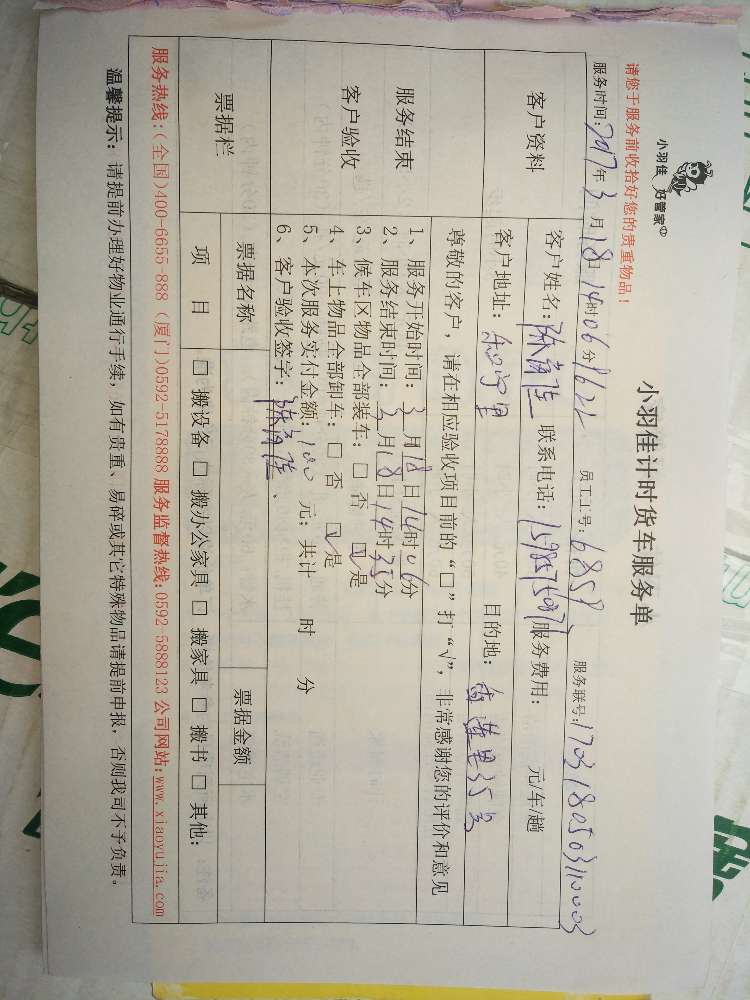 小羽佳 好管家
小羽佳计时货车服务单
请您于服务前收拾好您的贵重物品！
服务时间：2017年3月18日14时06分 员工工号：6858 服务联号：170318050310003
客户资料
客户姓名： 联系电话： 服务费用： 元/车/趟
客户地址： 目的地：香莲里35号
服务结束
客户验收
尊敬的客户，请在相应验收项目前的“□”打“√”，非常感谢您的评价和意见
1、服务开始时间：3月18日14时06分
2、服务结束时间：3月18日14时35分
3、候车区物品全部装车：□ 否 ☑ 是
4、车上物品全部卸车：□ 否 ☑ 是
5、本次服务实付金额：100 元；共计 时 分
6、客户验收签字：
票据栏
票据名称 票据金额
项 目 □ 搬设备 □ 搬办公家具 □ 搬家具 □ 搬书 □ 其他：
服务热线：(全国)400-6655-888 (厦门)0592-5178888 服务监督热线：0592-5888123 公司网站：www.xiaoyujia.com
温馨提示：请提前办理好物业通行手续，如有贵重、易碎或其它特殊物品请提前申报，否则我司不予负责。